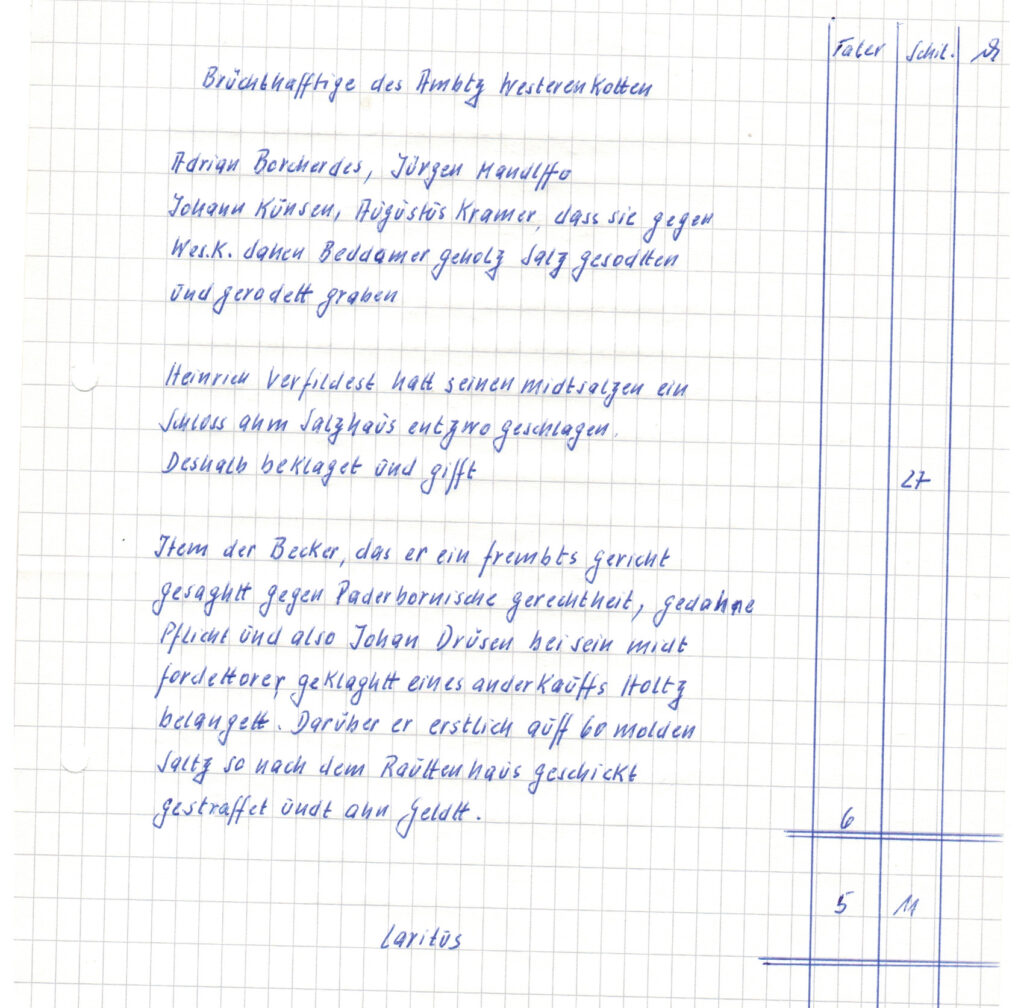 Taler Schil. ₰
Brüchthafftige des Ambtz Westerenkotten
Adrian Borcherdes, Jürgen Mandlffo
Johann Künsen, Augustus Kramer, dass sie gegen
Wes.K. danen Beddamer geholz Salz gesodtten
und geradett graben
Heinrich Verfildest hatt seinen midtsalzen ein
Schloss ahm Salzhaus entzwo geschlagen.
Deshalb beklaget und gifft 27
Item der Becker, das er ein frembts gericht
gesaghtt gegen Paderbornische gerechtheit, gedahne
Pflicht und also Johan Drüsen bei sein midt
fordettorer geklaghtt eines anderkauffs Holtz
belangett. Darüber er erstlich auff 60 molden
Saltz so nach dem Rauttenhaus geschickt
gestraffet undt ahn Geldtt. 6
5 11
Laritus